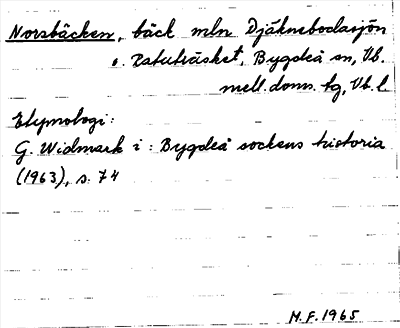 Norsbäcken, bäck mln Djäknebodasjön
o. Ratuträsket, Bygdeå sn, Vb.
mell. doms. tg, Vb. l.
Etymologi:
G. Widmark i: Bygdeå sockens historia
(1963), s. 74
M.F. 1965